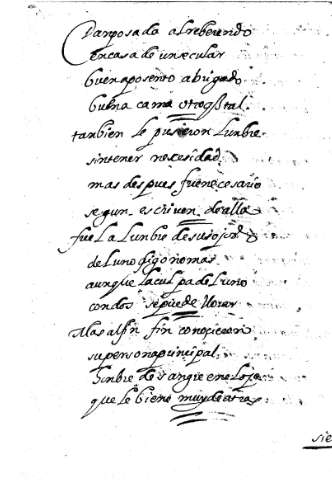 Dan posada al reberendo
en casa de un secular
buen aposento abrigado
buena cama otro q̃ tal.
tanbien le pusieron lunbre
sin tener necesidad
mas despues fue necesario
segun escriven de alla
fue la lunbre de sus ojos
de l uno digo no mas
aunque la culpa de l uno
con dos se puede llorar
Mas al fin fin
su persona principal
de sangre en el ojo
que le biene muy de atras
sie